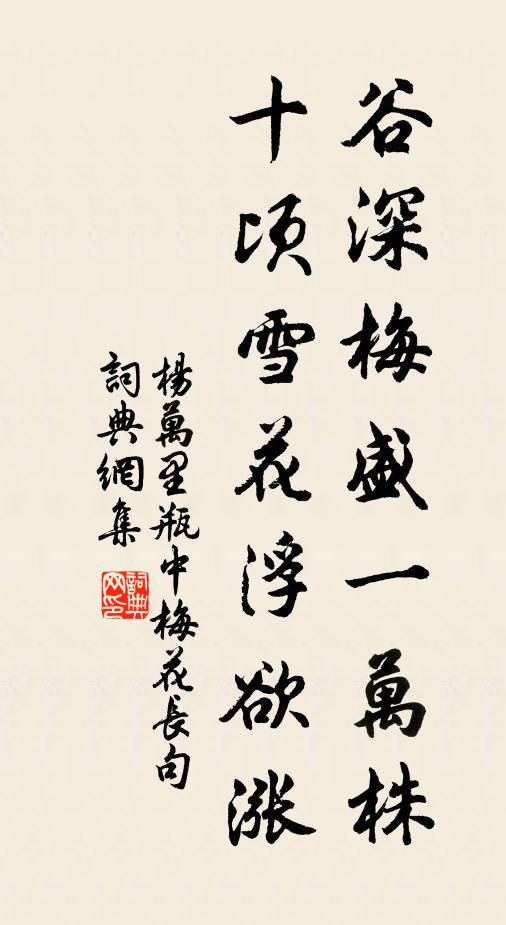 谷深梅盛一萬株
十頃雪花浮欲漲
楊萬里瓶中梅花長句
詞典網集
詞典网印